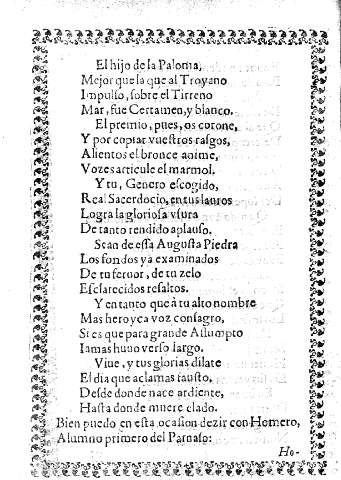 El hijo de la Paloma,
Mejor que la que al Troyano
Impulso, sobre el Tirreno
Mar, fue Certamen, y blanco.
El premio, pues, os corone,
Y por copiar vuestros rasgos,
Alientos el bronce anime,
Vozes articule el marmol.
Y tu, Genero escogido,
Real Sacerdocio, en tus lauros
Logra la gloriosa vsura
De tanto rendido aplauso.
Sean de essa Augusta Piedra
Los fondos ya examinados
De tu feruor, de tu zelo
Esclarecidos resaltos.
Y en tanto que à tu alto nombre
Mas heroyca voz consagro,
Si es que para grande Assumpto
Iamas huuo verso largo.
Viue, y tus glorias dilate
El dia que aclamas fausto,
Desde donde nace ardiente,
Hasta donde muere elado.
Bien puedo en esta ocasion dezir con Homero,
Alumno primero del Parnaso:
Ho-